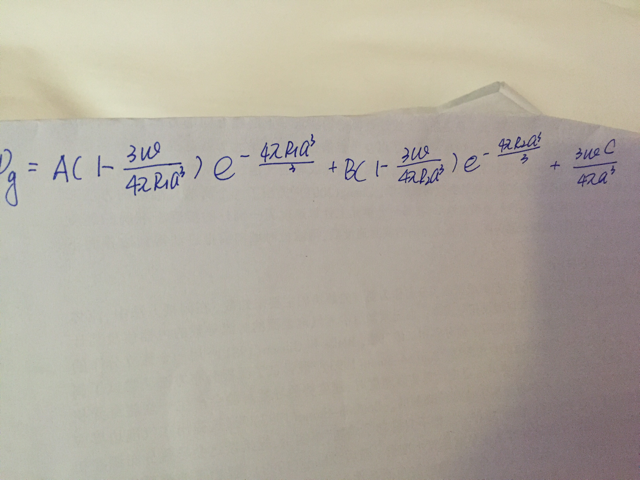 P_g = A(1 - 3ω/4πR₁a³) e^(-4πR₁a³/3) + B(1 - 3ω/4πR₂a³) e^(-4πR₂a³/3) + 3ωC/4πa³